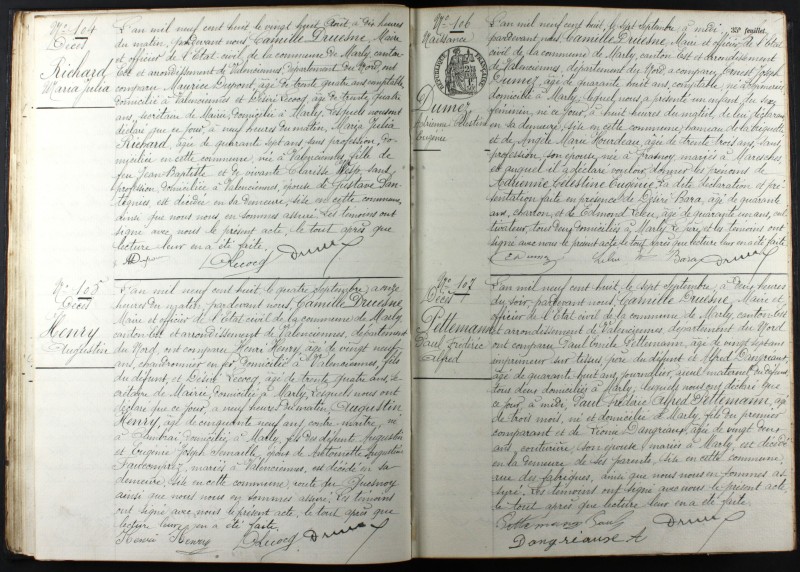 No 104
Décès
Richard
Maria Julia
L'an mil neuf cent huit le vingt huit Août à dix heures
du matin, pardevant nous, Camille Druesne, Maire
et officier de l'État civil de la commune de Marly, canton
Est et arrondissement de Valenciennes, département du Nord, ont
comparu Maurice Dupont, âgé de trente quatre ans, comptable,
domicilié à Valenciennes et Désiré Lecocq, âgé de trente quatre
ans, secrétaire de Mairie, domicilié à Marly, lesquels nous ont
déclaré que ce jour, à neuf heures du matin, Maria Julia
Richard, âgée de quarante sept ans, sans profession, do-
miciliée en cette commune, née à Valenciennes, fille de
feu Jean Baptiste et de vivante Clarisse sans
profession, domiciliée à Valenciennes, épouse de Gustave
est décédée en sa demeure, sise en cette commune,
ainsi que nous nous en sommes assuré. Les témoins ont
signé avec nous le présent acte, le tout après que
lecture leur en a été faite.
Dupont D Lecocq Druesne
No 105
Décès
Henry
Augustin
L'an mil neuf cent huit, le quatre Septembre, à onze
heures du matin, pardevant nous, Camille Druesne,
Maire et officier de l'État civil de la commune de Marly,
canton Est et arrondissement de Valenciennes, département
du Nord, ont comparu Henri Henry, âgé de vingt neuf
ans, chaudronnier en fer, domicilié à Valenciennes, fils
du défunt, et Désiré Lecocq, âgé de trente quatre ans, se-
crétaire de Mairie, domicilié à Marly, lesquels nous ont
déclaré que ce jour, à neuf heures du matin, Augustin
Henry, âgé de cinquante neuf ans, contre-maître, né
à domicilié à Marly, fils des défunts Augustin
et Eugénie Joseph époux de Antoinette Augustine
mariés à Valenciennes, est décédé en sa
demeure, sise en cette commune, route du Quesnoy
ainsi que nous nous en sommes assuré. Les témoins
ont signé avec nous le présent acte, le tout après que
lecture leur en a été faite.
Henri Henry D Lecocq Druesne
33e feuillet.
No 106
Naissance
RÉPUBLIQUE FRANÇAISE
Dumez
Adrienne Célestine
Eugénie
L'an mil neuf cent huit, le sept Septembre, à midi,
pardevant nous, Camille Druesne, Maire et officier de l'État
civil de la commune de Marly, canton Est et arrondissement
de Valenciennes, département du Nord, a comparu Ernest Joseph
Dumez, âgé de quarante huit ans, comptable, né à
domicilié à Marly, lequel nous a présenté un enfant du sexe
féminin, né ce jour, à huit heures du matin, de lui déclarant
en sa demeure, sise en cette commune, hameau de la Briquette
et de Angèle Marie Hourdeau, âgée de trente trois ans, sans
profession, son épouse, née à mariés à Maresches,
et auquel il a déclaré vouloir donner les prénoms de
Adrienne Célestine Eugénie. La dite déclaration et pré-
sentation faite en présence de Désiré Bara, âgé de quarante
ans, charron, et de Edmond Leleu, âgé de quarante un ans, cul-
tivateur, tous deux domiciliés à Marly. Le père et les témoins ont
signé avec nous le présent acte, le tout après que lecture leur en a été faite.
E Dumez Leleu Bara Druesne
No 107
Décès
Pettemann
Paul Frédéric
Alfred
L'an mil neuf cent huit, le sept Septembre, à deux heures
du soir, pardevant nous, Camille Druesne, Maire et
officier de l'État civil de la commune de Marly, canton Est
et arrondissement de Valenciennes, département du Nord
ont comparu Paul Emile Pettemann, âgé de vingt sept ans
imprimeur sur tissus, père du défunt et Alfred Dangréaux,
âgé de quarante huit ans, journalier, aïeul maternel du défunt,
tous deux domiciliés à Marly, lesquels nous ont déclaré que
ce jour, à midi, Paul Frédéric Alfred Pettemann, âgé
de trois mois, né et domicilié à Marly, fils du premier
comparant et de Léonie Dangréaux, âgée de vingt deux
ans, couturière, son épouse, mariés à Marly, est décédé
en la demeure de ses parents, sise en cette commune,
rue des fabriques, ainsi que nous nous en sommes as-
suré. Les témoins ont signé avec nous le présent acte,
le tout après que lecture leur en a été faite.
Pettemann Paul Druesne
Dangreause A